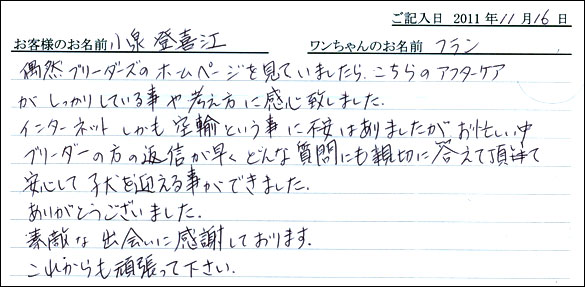 ご記入日 2011年11月16日
お客様のお名前 小泉 登喜江 ワンちゃんのお名前 フラン
偶然ブリーダーズのホームページを見ていましたら、こちらのアフターケア
がしっかりしている事や考え方に感心致しました。
インターネットしかも空輸という事に不安はありましたが、お忙しい中
ブリーダーの方の返信が早くどんな質問にも親切に答えて頂けて
安心して子犬を迎える事ができました。
ありがとうございました。
素敵な出会いに感謝しております。
これからも頑張って下さい。